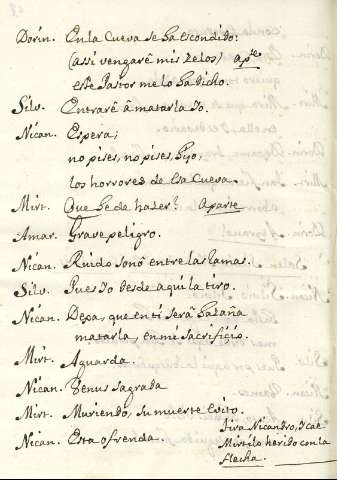 Dorin. En la Cueva se ha escondido:
(assi vengarè mis zelos) apte
este Pastor me lo ha dicho.
Silv. Entrarè â matarla Io.
Nican. Espera;
no pises, no pises, hijo,
los horrores de esa Cueva.
Mirt. Que he de hazer? Aparte
Amar. Grave peligro.
Nican. Ruido sonò entre las ramas.
Silv. Pues Io desde aqui la tiro.
Nican. Depa, que en ti serà hazaña
matarla, en mi sacrificio.
Mirt. Aguarda.
Nican. Venus sagrada
Mirt. Muriendo, su muerte evito.
Nican. Esta ofrenda.
Tira Nicandro, I cae
Mirtilo herido con la
flecha.